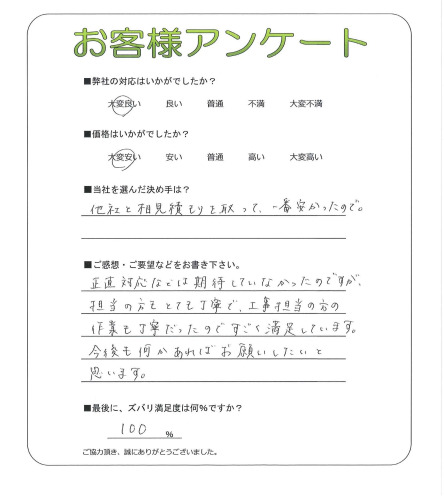 お客様アンケート
■弊社の対応はいかがでしたか?
大変良い 良い 普通 不満 大変不満
■価格はいかがでしたか?
大変安い 安い 普通 高い 大変高い
■当社を選んだ決め手は?
他社と相見積もりを取って、一番安かったので。
■ご感想・ご要望などをお書き下さい。
正直対応などは期待していなかったのですが、
担当の方もとても丁寧で、工事担当の方の
作業も丁寧だったのですごく満足しています。
今後も何かあればお願いしたいと
思います。
■最後に、ズバリ満足度は何%ですか?
100 %
ご協力頂き、誠にありがとうございました。